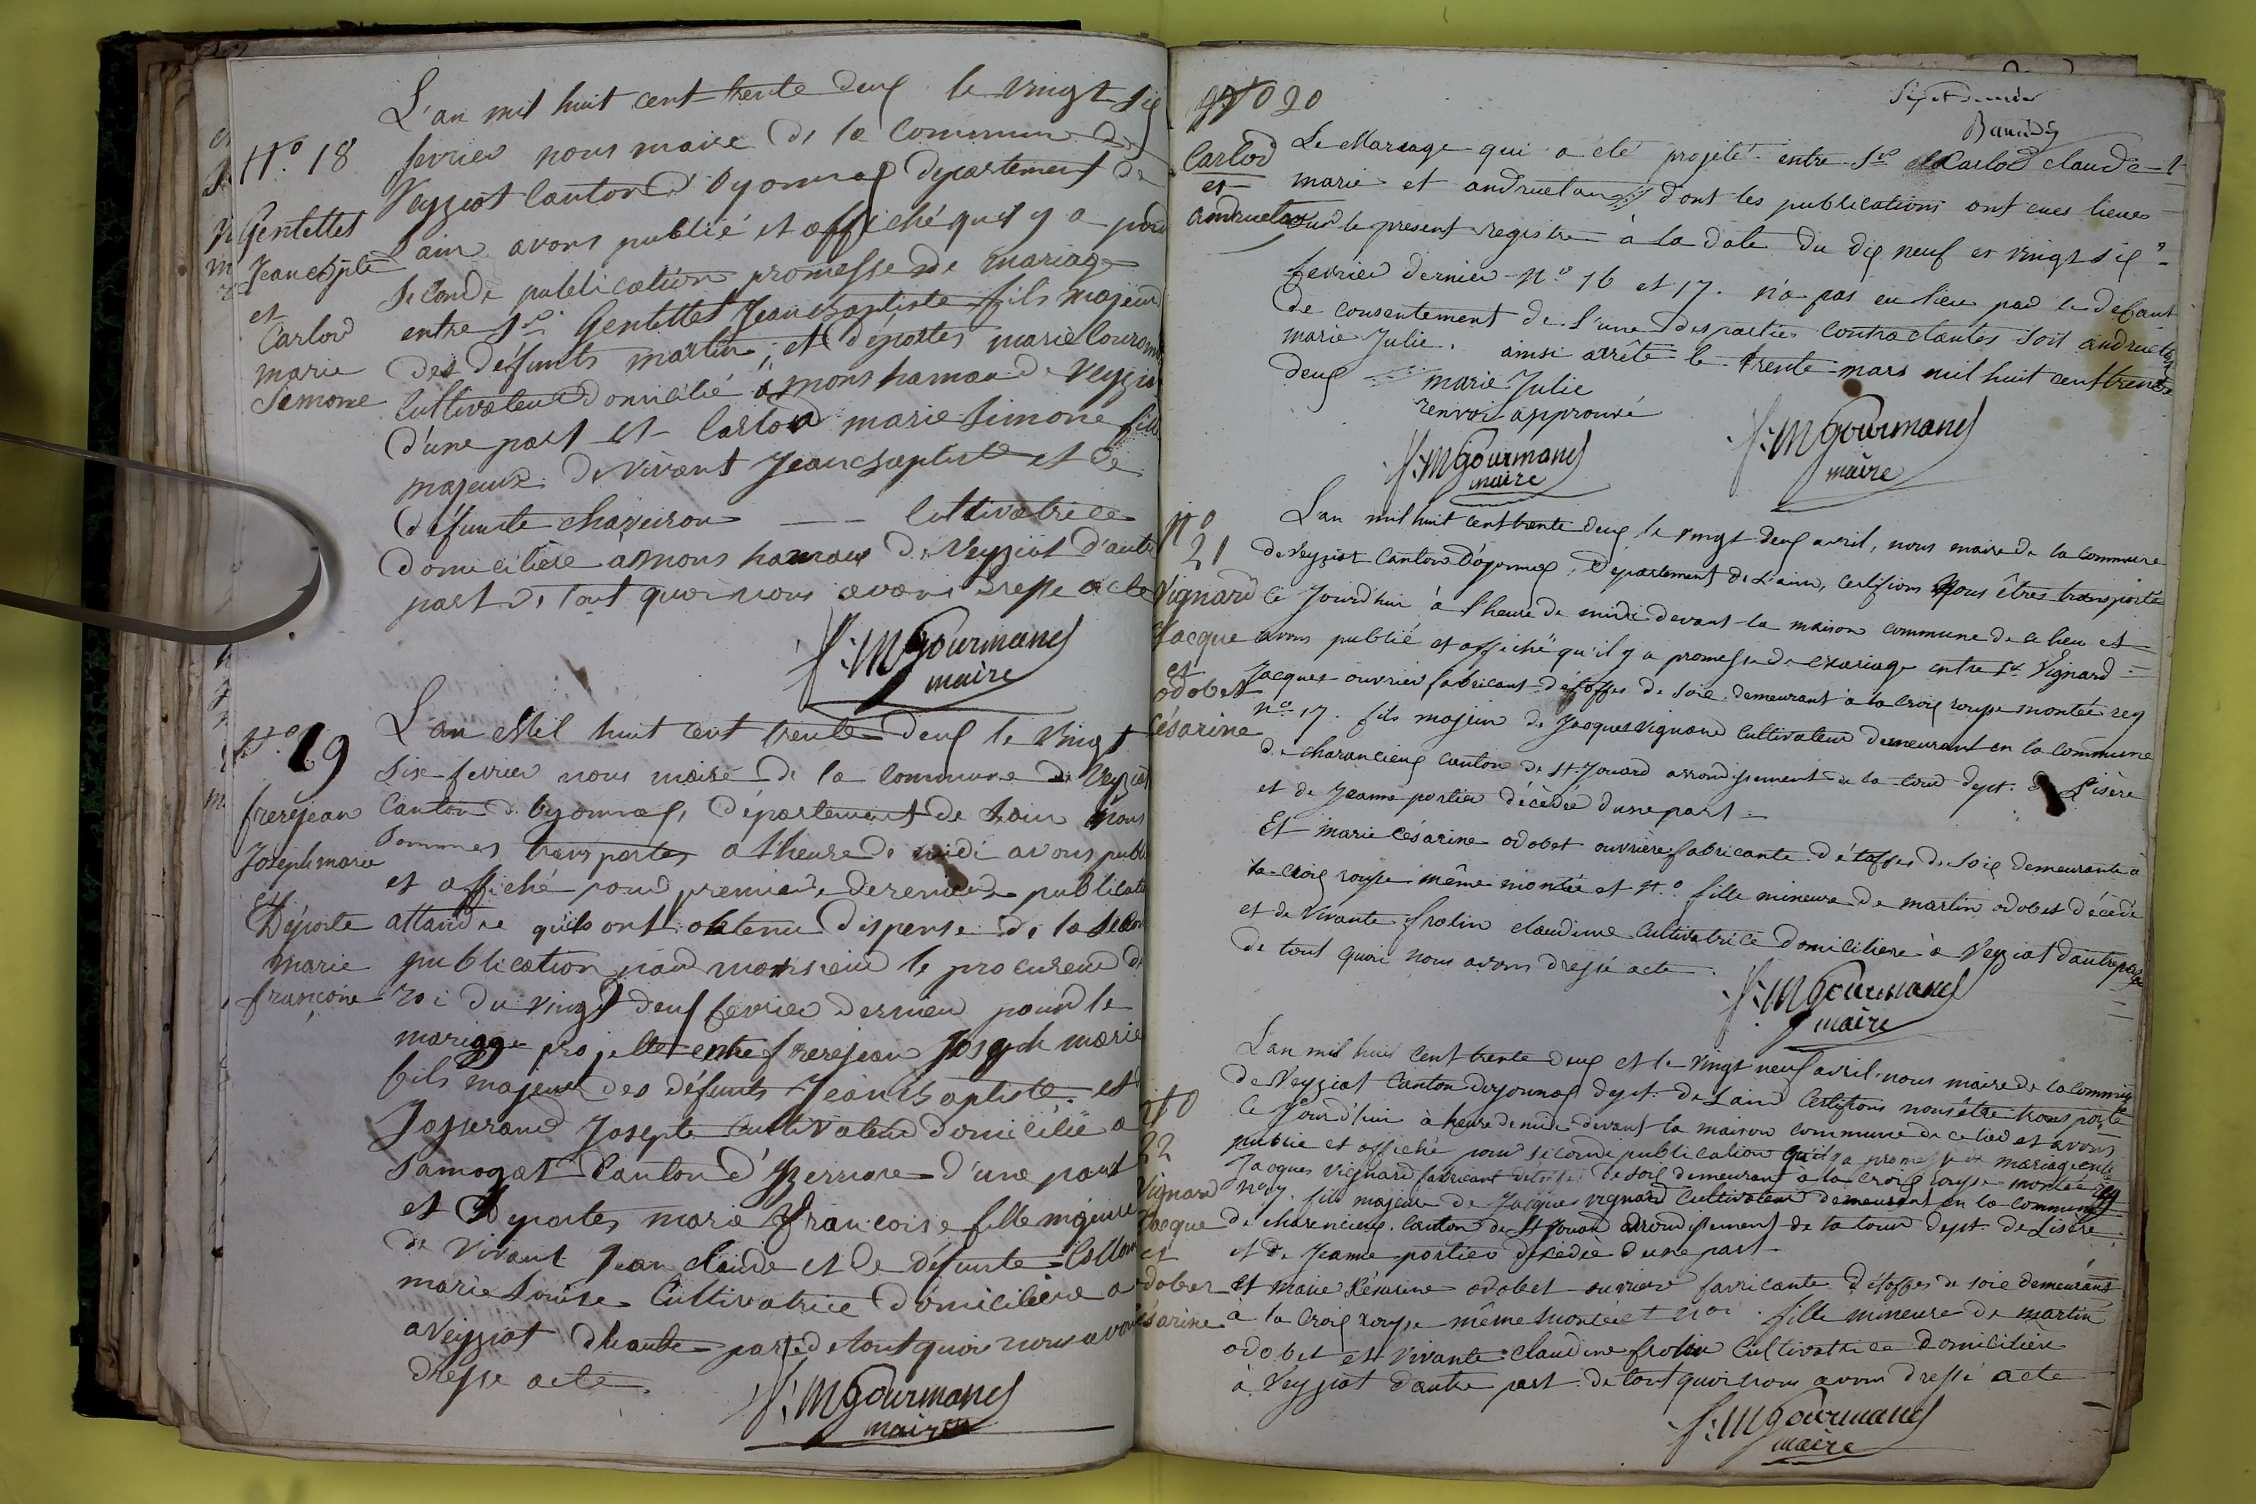 N.o 18
Gentellet
Jean Bpte
et
Carlod
marie
Simone
L'an mil huit cent trente deux le vingt six
fevrier nous maire de la Commune de
Veyziat Canton d'oyonnax département de
L'ain avons publié et affiché quil y a pour
Seconde publication promesse de mariage
entre Sr. Gentellet Jean Baptiste fils majeur
des défunts martin, et déportes marie
Cultivateur domicilié à mons hamau de Veyziat
d'une part et Carlod marie Simone fille
majeure de vivant Jean Baptiste et de
défunte chaveiron cultivatrice
domiciliere à mons hamau de Veyziat d'autre
part de tout quoi nous avons dressé acte
f: M Gourmand
maire
N.o 19
frerejean
Joseph marie
et
Déporte
marie
françoise
L'an Mil huit cent trente deux le vingt
six fevrier nous maire de la commune de Veyziat
Canton d'oyonnax, département de Lain nous
Sommes transportes a l'heure de midi avons publié
et affiché pour premiere derniere publication
attandre qu'ils ont obtenu dispense de la
publication par monsieur le procureur du
roi du vingt deux fevrier dernier pour le
mariage projetté entre frerejean Joseph marie
fils majeur des défunts Jean Baptiste et
Josserand Josepte cultivateur domicilié a
Samognat Canton d'Yzernore d'une part
et Deportes marie françoise fille majeure
de vivant Jean claude et de défunte
marie Louise Cultivatrice domiciliere a
a Veyziat d'autre part de tout quoi nous avons
dresse acte.
f: M Gourmand
maire
No 20
Carlod
et
andruetan
Le Mariage qui a été projeté entre Sr Carlod claude
marie et andruetan dont les publications ont eues lieues
sur le present registre à la date du dix neuf et vingt six
fevrier dernier No. 16 et 17. n'a pas eu lieu par le defaut
de consentement de l'une des parties contractantes soit andruetan
marie Julie. ainsi arrêté le trente mars mil huit cent trente
deux
marie Julie
renvoi approuvé
f: M Gourmand
maire
f: M Gourmand
maire
No
21
Vignard
Jacque
et
odobet
Césarine
L'an mil huit cent trente deux le vingt deux avril, nous maire de la commune
de Veyziat Canton d'oyonnax, département de L'ain, certifions Nous êtres transporté
ce Jourdhui à l'heure de midi devant la maison commune de ce lieu et
avons publié et affiché qu'il y a promesse de mariage entre Sr. Vignard
Jacques ouvrier fabricant d'étoffes de soie demeurant à la croix rousse montée rey
no 17. fils majeur de Jacques Vignard cultivateur demeurant en la commune
de charancieux canton de St. Jouard arrondissement de la tour dept. de L'isère
et de Jeanne portier décédée d'une part
Et marie césarine odobet ouvrière fabricante d'étoffes de soie demeurante à
la croix rousse même montée et N.o fille mineure de martin odobet décédé
et de Vivante frolin claudine cultivatrice domiciliere à Veyziat d'autre part
de tout quoi nous avons dressé acte
f: M Gourmand
maire
No
22
Vignard
Jacque
et
odobet
Césarine
L'an mil huit cent trente deux et le vingt neuf avril nous maire de la commune
de Veyziat Canton doyonnax dept. de Lain Certifions nous être transporté
ce Jourd'hui à heure de midi devant la maison commune de ce lieu et avons
publié et affiché pour seconde publication qu'il y a promesse de mariage entre
Jacques vignard fabricant d'étoffes de soie demeurant à la croix rousse montée rey
no 17. fils majeur de Jacques vignard cultivateur demeurant en la commune
de charencieux. Canton de St Jouard arrondissement de la tour dept. de Lisère
et de Jeanne portier décédée d'une part
et marie Césarine odobet ouvriere fabricante d'étoffes de soie demeurant
à la croix rousse même montée et no. fille mineure de martin
odobet et vivante claudine frolin Cultivatrice Domiciliere
à Veyziat d'autre part de tout quoi nous avons dressé acte
f: M Gourmand
maire